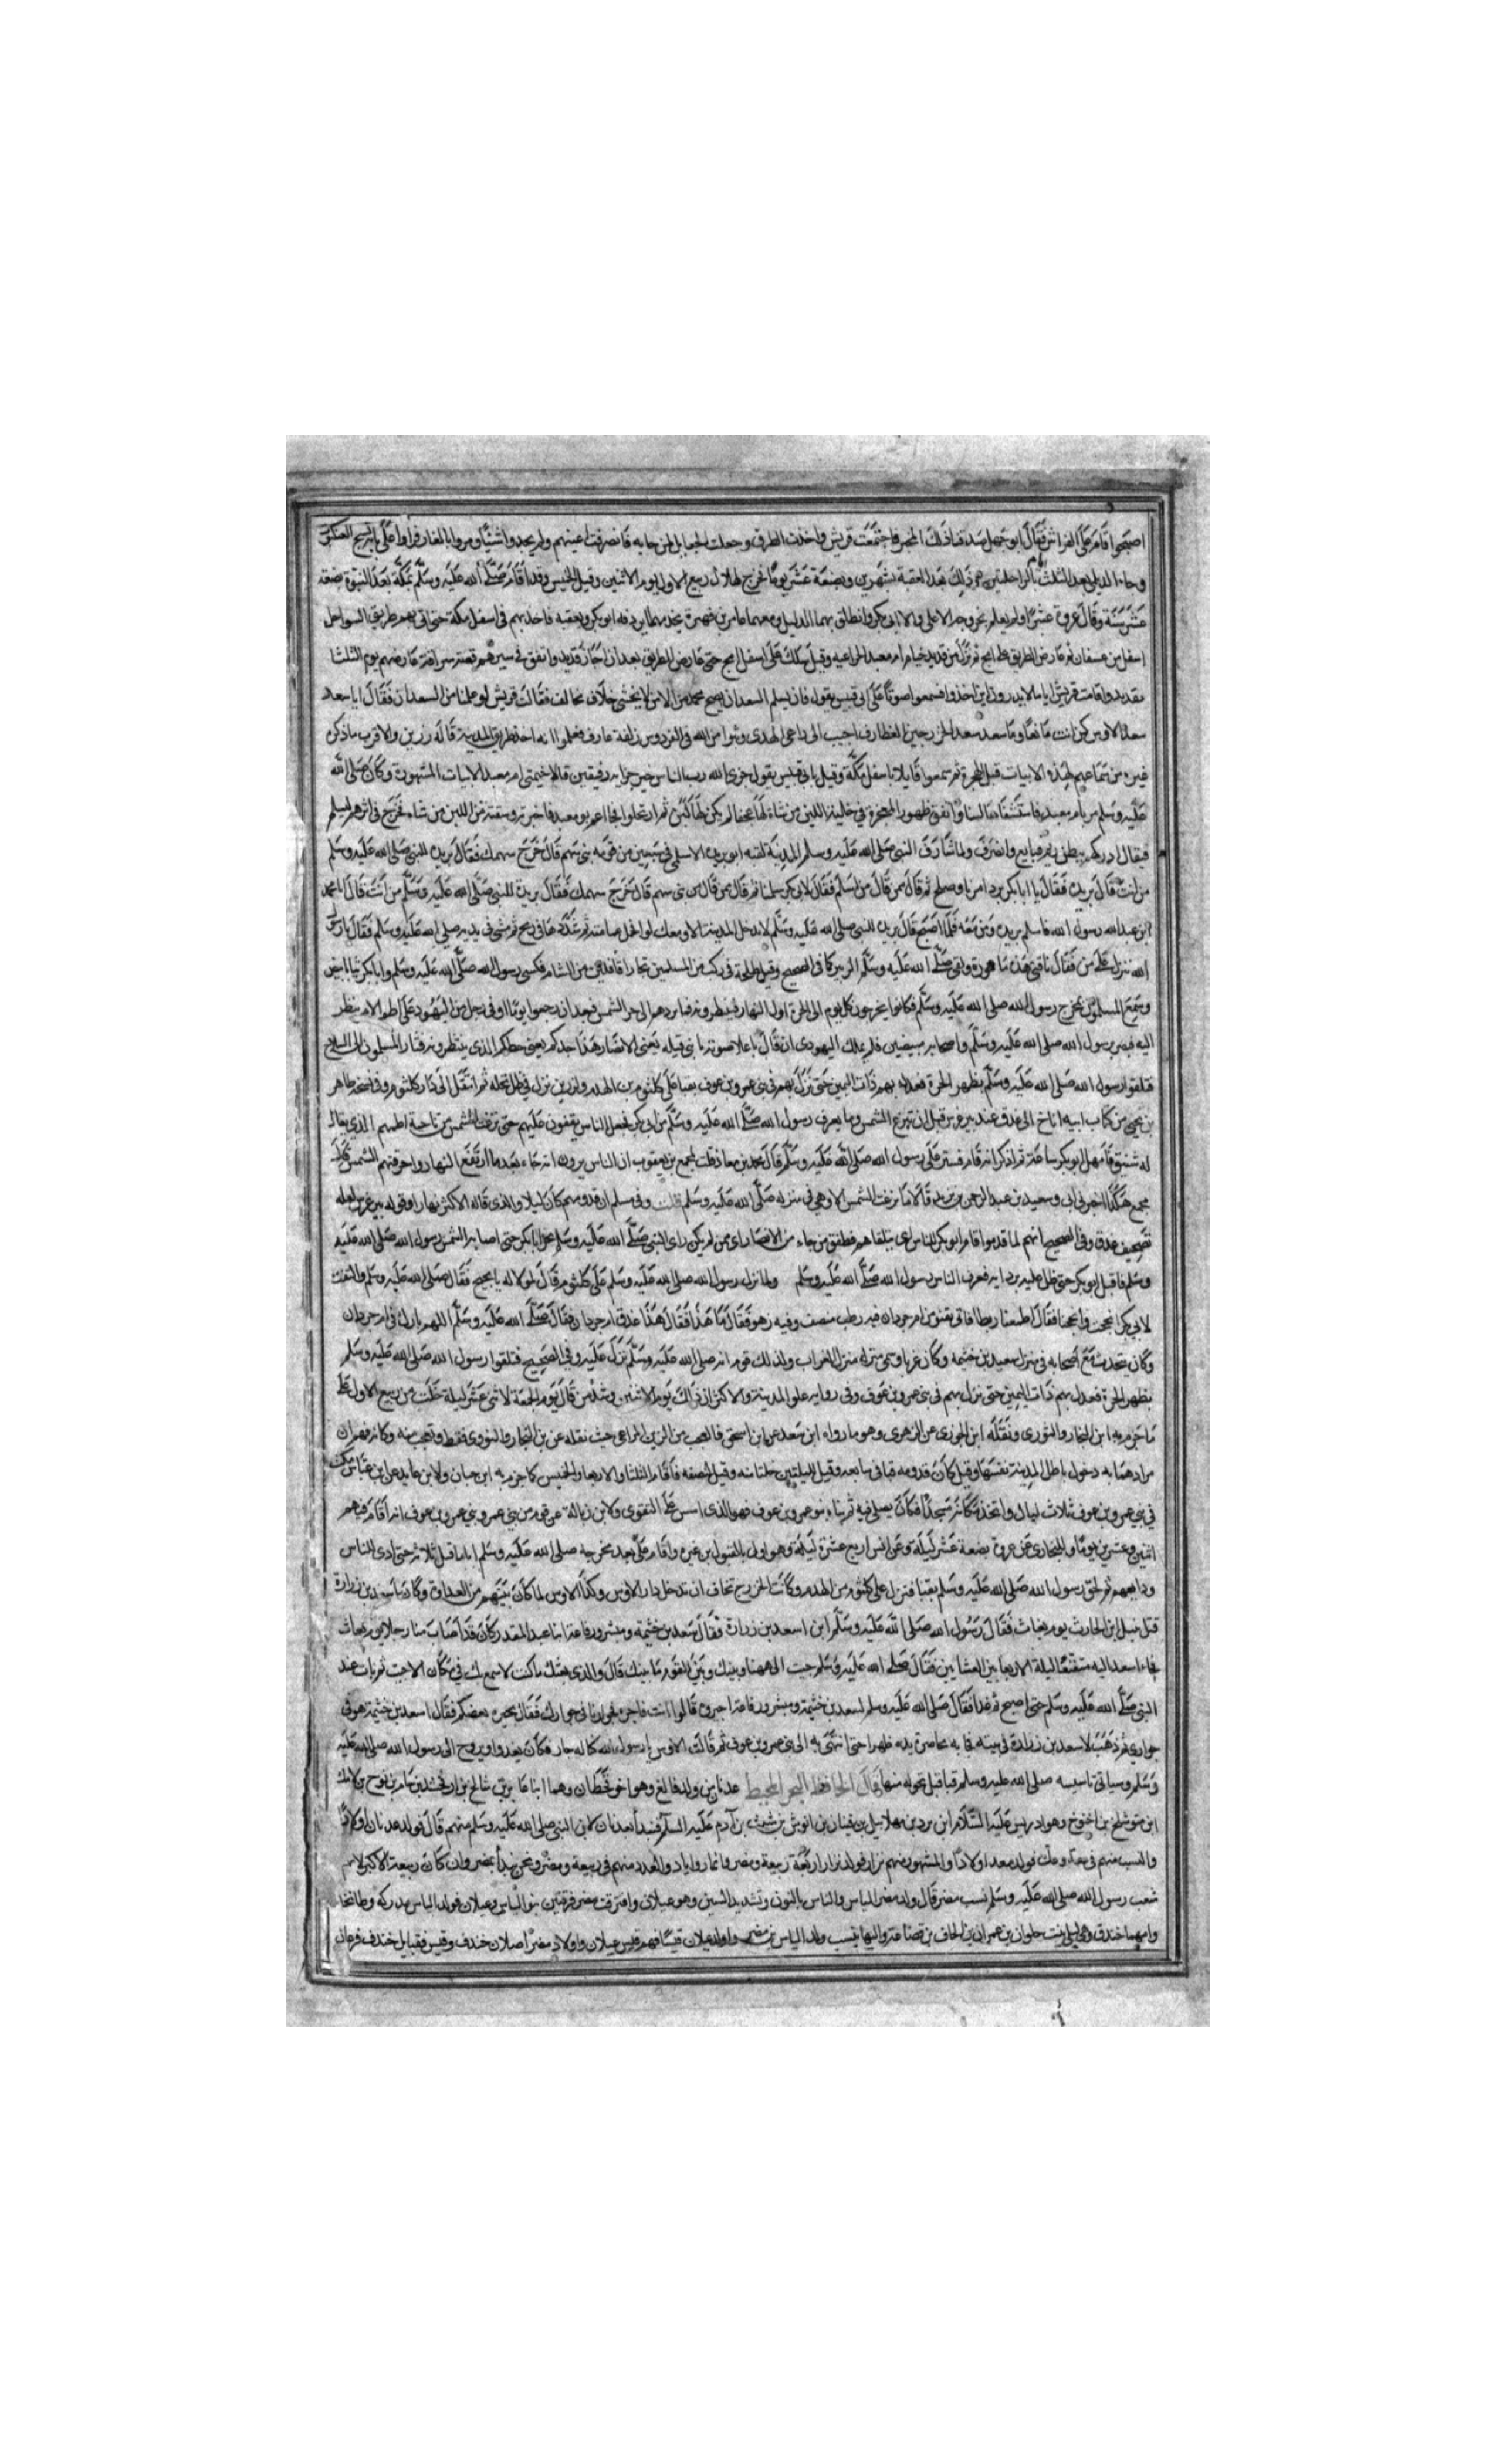 اصبحوا قام على الفراش فقال ابو جهل صدقنا ذلك المخبر فاجتمعت قريش واخذت الطرق وجعلت الجعايل لمن جا به فانصرفت اعينهم ولم يجدوا شيئا ومروا بالغار فراوا على بابه نسج العنكبوت
وجاء الديلي بعد الثلث بالراحلتين ذلك بعد العقبة بشهرين وبضعة عشر يوما فخرج لهلال ربيع الاول يوم الاثنين وقيل الخميس وقد اقام صلى الله عليه وسلم بمكة بعد النبوة بضعة
عشر سنة وقال عروة عشرا ولم يعلم بخروجه الا علي وال ابي بكر وانطلق بهما الدليل ومعهما عامر بن فهيرة يخدمهما يردفه ابو بكر ويعقبه فاخذ بهم في اسفل مكة حتى اتى بهم طريق السواحل
اسفل من عسفان ثم عارض الطريق على امج ثم نزل من قديد خيام ام معبد الخزاعيه وقيل سلك على اسفل امج حتى عارض الطريق بعد ان اجاز قديد واتفق في مسيرهم قصة سراقة عارضهم يوم الثلثا
بقديد واقامت قريش اياما لا يدرون اين اخذوا فسمعوا صوتا على ابي قبيس يقول فان يسلم السعدان يصبح محمد من الامن لا يخشى خلاف مخالف فقالت قريش لو علمنا من السعدان فقال ايا سعد
سعد الاوس كن انت مانعا ويا سعد سعد الخزرجين الغطارف اجيبا الى داعي الهدى وتمنوا من الله في الفردوس زلفة عارف فعلموا انه اخذ طريق المدينة قاله رزين والاقرب ما ذكر
غيره من سماعهم لهذه الابيات قبل الهجرة ثم سمعوا قايلا باسفل مكة وقيل بابي قبيس يقول جزى الله رب الناس خير جزايه رفيقين قالا خيمتي ام معبد الابيات المشهورة وكان صلى الله
عليه وسلم مر بام معبد فاستسقاها لبنا واتفق ظهور المعجزة في حلبه اللبن من شاة لها عجفا لم يكن لها لبن ثم ارتحلوا فجا ابو معبد فاخبرته وسقته من اللبن من شاء فخرج في اثرهم ليسلم
فيقال ادركهم ببطن ريم فبايع وانصرف ولما شارف النبي صلى الله عليه وسلم المدينة لقيه ابو بريدة الاسلمي في سبعين من قومه بني سهم قال خرج سهمك فقال بريدة للنبي صلى الله عليه وسلم
من انت قال بريدة فقال يا ابا بكر برد امرنا وصلح ثم قال ممن قال من اسلم فقال لابي بكر سلمنا ثم قال ممن قال من بني سهم قال خرج سهمك فقال بريدة للنبي صلى الله عليه وسلم من انت قال انا محمد
ابن عبد الله رسول الله فاسلم بريدة ومن معه فلما اصبح قال بريدة للنبي صلى الله عليه وسلم لا تدخل المدينة الا ومعك لوا فحل عمامته ثم شدها في رمح ثم مشى بين يديه صلى الله عليه وسلم فقال يا رسول
الله تنزل على من فقال ناقتي هذه مامورة ولقي صلى الله عليه وسلم الزبير كما في الصحيح وقيل طلحة في ركب من المسلمين تجارا قافلين من الشام فكسى رسول الله صلى الله عليه وسلم وابا بكر ثيابا بيض
وسمع المسلمون بمخرج رسول الله صلى الله عليه وسلم فكانوا يخرجون كل يوم الى الحرة اول النهار فينظرونه فما يردهم الا حر الشمس فبعد ان رجعوا يوما اوفى رجل من اليهود على اطم لامر ينظر
اليه فبصر برسول الله صلى الله عليه وسلم واصحابه مبيضين فلم يملك اليهودي ان قال باعلا صوته يا بني قيله يعني الانصار هذا جدكم يعني حظكم الذي تنتظرونه فثار المسلمون الى السلاح
فتلقوا رسول الله صلى الله عليه وسلم بظهر الحرة فعدل بهم ذات اليمين حتى نزل بهم في بني عمرو بن عوف بقبا على كلثوم بن الهدم ولرزين نزل في ظل نخله ثم انتقل الى دار كلثوم وفي نسخة طاهر
بن يحيى من كتاب ابيه اناخ الى عذق عند بير غرس قبل ان تبزغ الشمس وما يعرف رسول الله صلى الله عليه وسلم من ابي بكر فجعل الناس يقفون عليهم حتى بزغت الشمس من ناحية اطمهم الذي يقال
له شنيف فامهل ابو بكر ساعة ثم اذكر انه قام فستر على رسول الله صلى الله عليه وسلم قال محمد بن معاذ قلت لمجمع بن يعقوب ان الناس يرون انه جاء بعد ما ارتفع النهار واحرقتهم الشمس قال
مجمع هكذا اخبرني ابي وسعيد بن عبد الرحمن بن يزيد قالا ما بزغت الشمس الا وهي في منزله صلى الله عليه وسلم قلت وفي مسلم ان قدومهم كان ليلا والذي قاله الاكثر نهارا وقوله بير غرس لعله
تصحيف عذق وفي الصحيح انهم لما قدموا قام ابو بكر للناس اي يتلقاهم فطفق من جاء من الانصار اي ممن لم يكن راى النبي صلى الله عليه وسلم يحيي ابا بكر حتى اصابه الشمس رسول الله صلى الله عليه
وسلم فاقبل ابو بكر حتى ظل عليه بردايه فعرف الناس رسول الله صلى الله عليه وسلم ولما نزل رسول الله صلى الله عليه وسلم على كلثوم قال لمولا له يا نجيح فقال صلى الله عليه وسلم والتفت
لابي بكر انجحت او انجحنا فقال اطعمنا رطبا فاتى بقنو من ام جرذان فيه رطب منصف وفيه زهو فقال ما هذا فقال هذا عذق ام جرذان فقال صلى الله عليه وسلم اللهم بارك في ام جرذان
وكان يتحدث مع اصحابه في منزل سعيد بن خثيمه وكان عزبا ويسمى منزله منزل العزاب ولذلك قيل انه صلى الله عليه وسلم نزل عليه وفي الصحيح فتلقوا رسول الله صلى الله عليه وسلم
بظهر الحرة فعدل بهم ذات اليمين حتى نزل بهم في بني عمرو بن عوف وفي رواية علو المدينة والاكثر ان ذلك يوم الاثنين وشذ من قال يوم الجمعة لاثني عشر ليلة خلت من ربيع الاول على
ما جزم به ابن النجار والنووي ونقله ابن الجوزي عن الزهري وهو ما رواه ابن سعد عن ابن اسحق فالعجب من الزين المراغي حيث نقله عن بن النجار والنووي فقط وتعجب منه وكانه فهم ان
مرادهما به دخول باطن المدينة نفسها وقيل كان قدومه قبا في سابعه وقيل لليلتين خلتا منه وقيل لنصفه فاقام الثلثا والاربعا والخميس كما جزم به ابن حبان ولابن عايد عن ابن عباس مكث
في بني عمرو بن عوف ثلاث ليال واتخذ مكانه مسجدا فكان يصلي فيه ثم بناه بنو عمرو بن عوف فهو الذي اسس على التقوى ولابن زبالة عن قوم من بني عمرو بن عوف انه اقام فيهم
اثنين وعشرين يوما وللبخاري عن عروة بضعة عشر ليلة وعن انس اربع عشرة ليلة وهو اولى بالقبول من غيره واقام علي بعد مخرجه صلى الله عليه وسلم اياما قيل ثلاثة حتى ادى للناس
ودايعهم ثم لحق رسول الله صلى الله عليه وسلم بقبا فنزل على كلثوم بن الهدم وكانت الخزرج تخاف ان تدخل دار الاوس وكذا الاوس لما كان بينهم من العداوة وكان اسعد بن زرارة
قتل نبتل ابن الحارث يوم بعاث فقال رسول الله صلى الله عليه وسلم اين اسعد بن زرارة فقال سعد بن خثيمة ومبشر ورفاعة ابنا عبد المنذر كان قد اصاب منا رجلا يوم بعاث
فجاء اسعد اليه متقنعا ليلة الاربعا بين العشايين فقال صلى الله عليه وسلم جيت الى ههنا وبينك وبين القوم ما بينك قال والذي بعثك ما كنت لاسمع بك في مكان الا جيت ثم بات عند
النبي صلى الله عليه وسلم حتى اصبح ثم غدا فقال صلى الله عليه وسلم لسعد بن خثيمة ومبشر ورفاعة اجيروه قالوا انت فاجره فجوارنا في جوارك فقال يجيره بعضكم فقال سعد بن خثيمة هو في
جواري ثم ذهب لاسعد بن زرارة في بيته فجا به مخاصره يده ظهرا حتى انتهى به الى بني عمرو بن عوف ثم قالت الاوس يا رسول الله كلنا له جار فكان يغدوا ويروح الى رسول الله صلى الله عليه
وسلم وسياتي تاسيسه صلى الله عليه وسلم قبا قبل تحوله منها قال الحافظ البحر المحيط عدنان من ولد فالغ وهو اخو قحطان وهما ابنا عابر بن شالخ بن ارفخشد بن سام بن نوح بن لامك
ابن متوشلخ بن اخنوخ وهو ادريس عليه السلام ابن يرد بن مهلاييل بن قينان بن انوش بن شيث بن آدم عليه السلام فنبدأ بعدنان لان النبي صلى الله عليه وسلم منهم قال فولد عدنان اولادا
والنسب منهم في معد وعك فولد معد اولادا والمشهور منهم نزار فولد نزار اربعة ربيعة ومضر وانمار واياد والعدد منهم في ربيعة ومضر ونحن نبدأ بمضر وان كان ربيعة الاكبر لان
شعب رسول الله صلى الله عليه وسلم نسب مضر قال ولد مضر الياس والناس بالنون وتشديد السين وهو عيلان وافترقت مضر فرقتين بنو الياس وعيلان فولد الياس مدركه وطابخا
وامهما خندف وهي ليلى بنت حلوان بن عمران بن الحاف بن قضاعة واليها ينسب ولد الياس بن مضر وولد عيلان قيسا فهم قيس عيلان واولاد مضر اصلان خندف وقيس فقبايل خندف فرعان